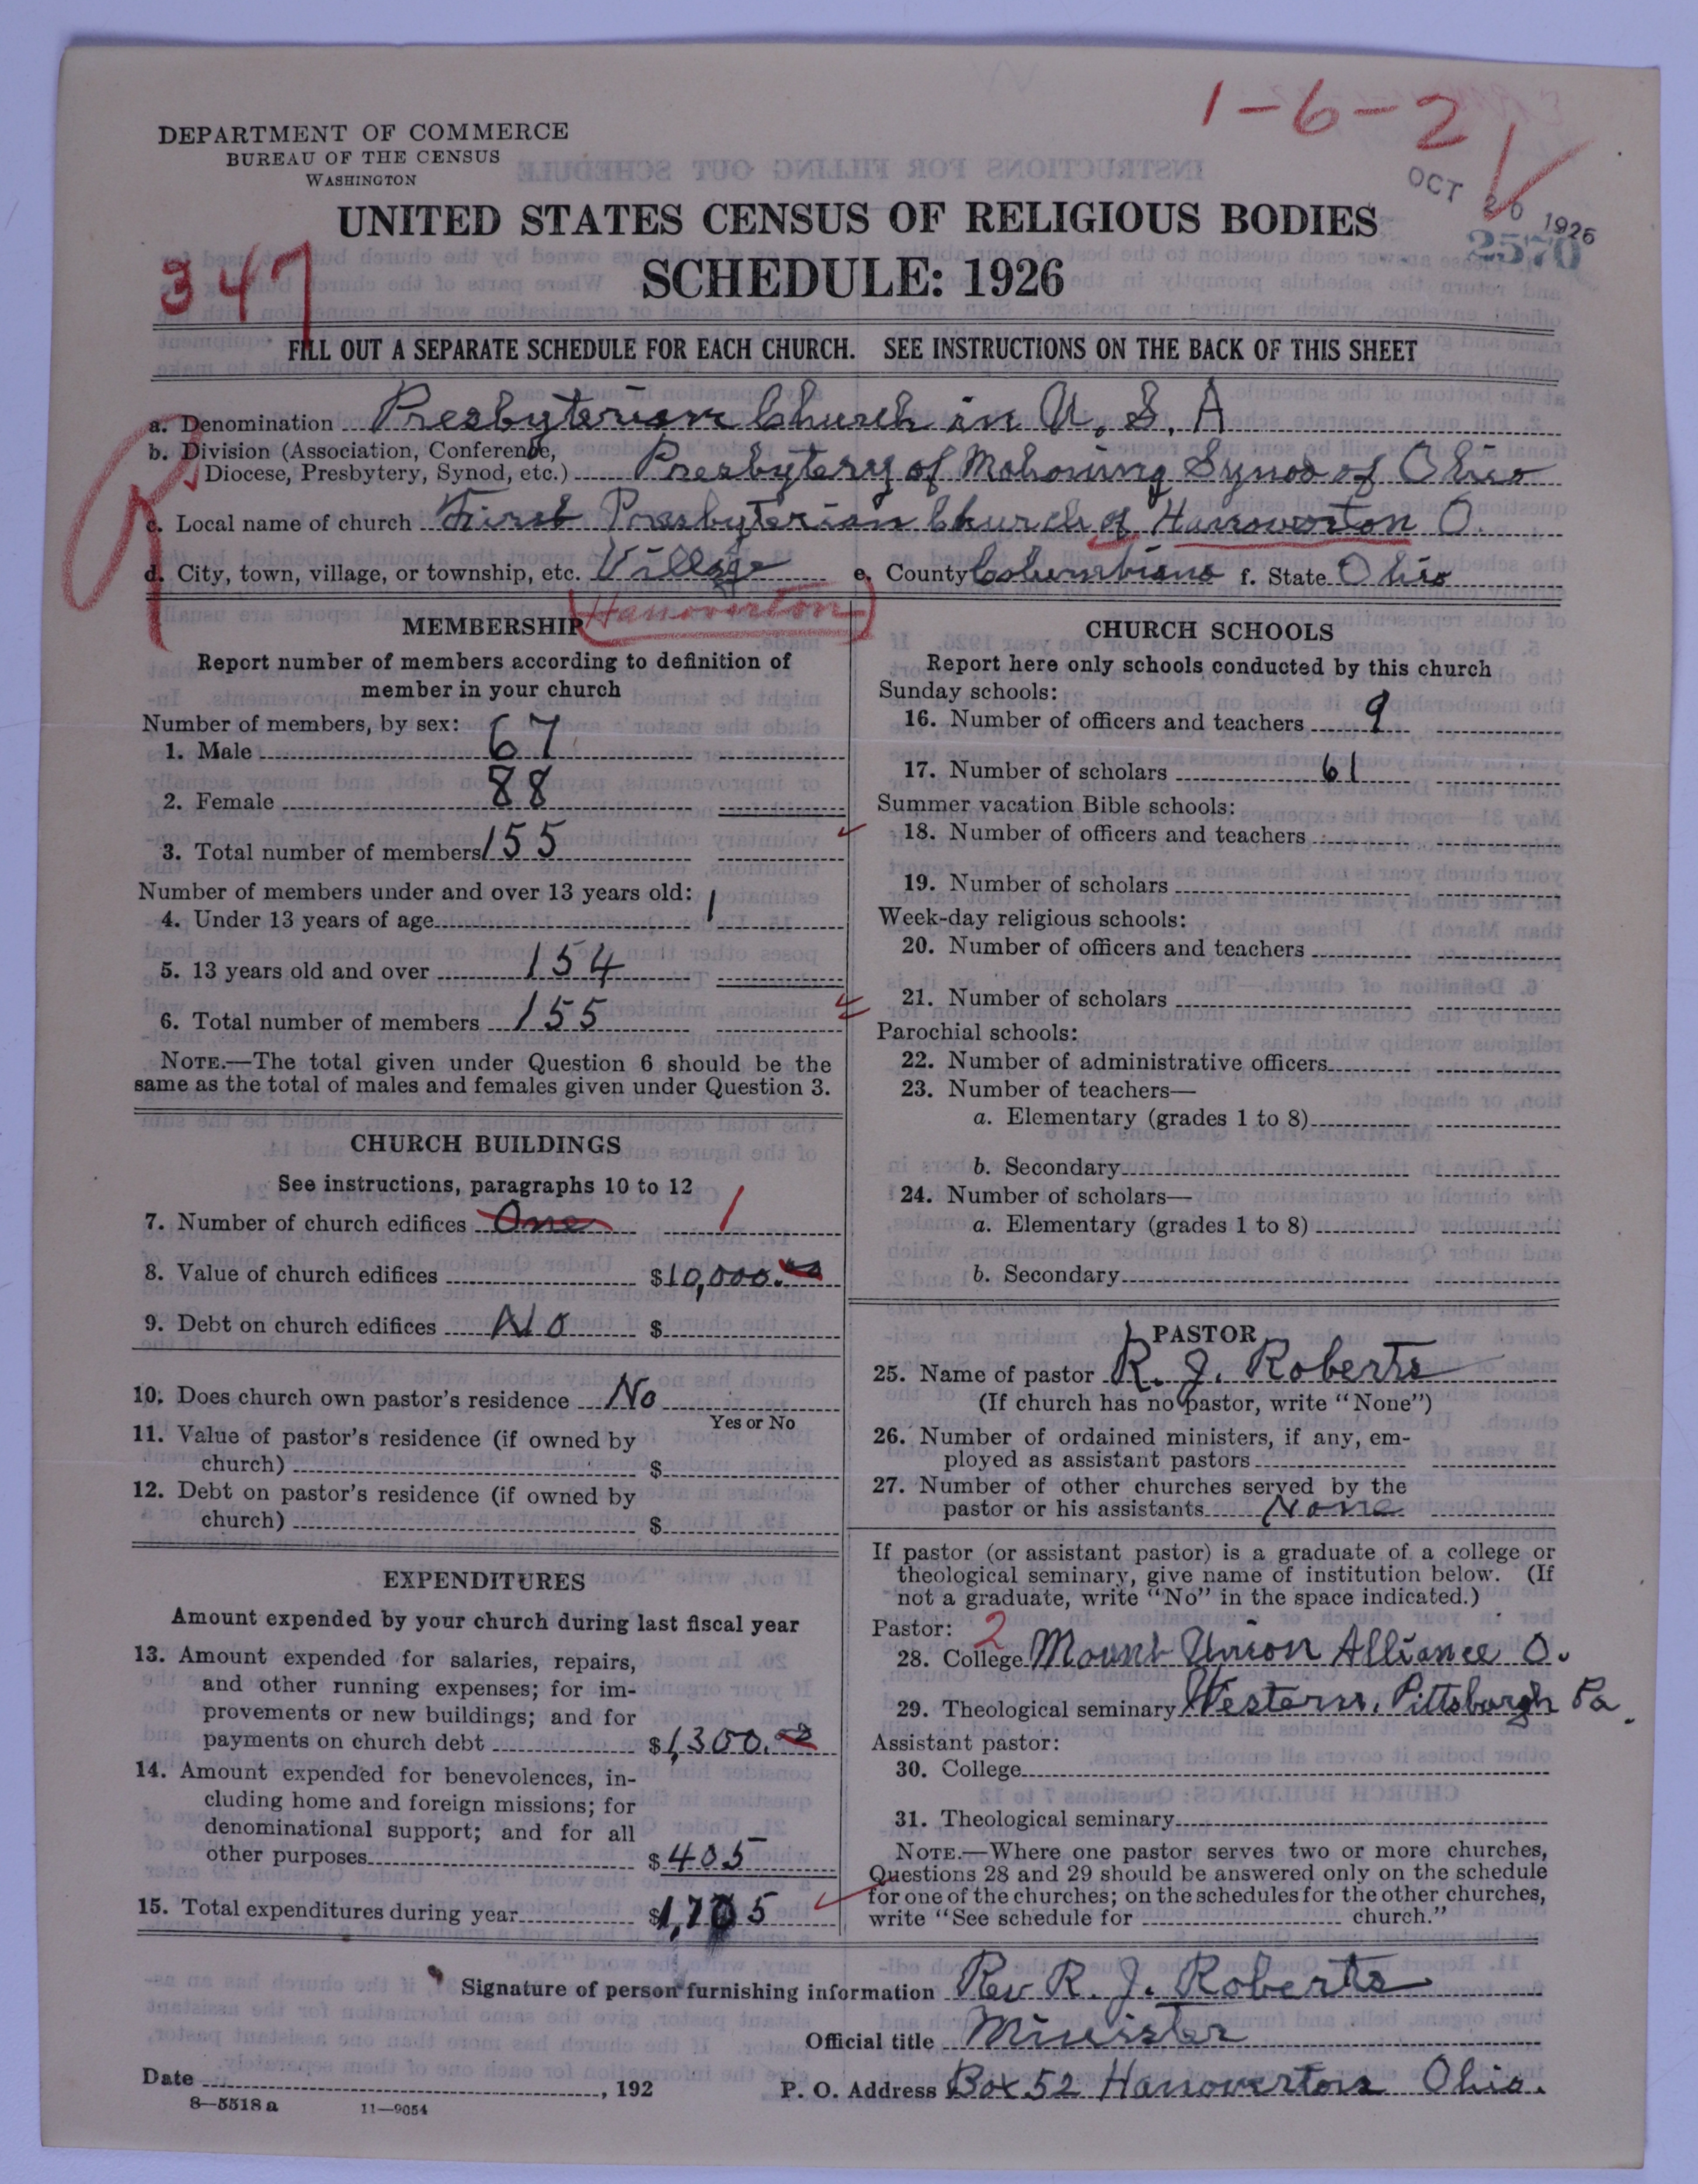 1-6-2
DEPARTMENT OF COMMERCE
BUREAU OF THE CENSUS
WASHINGTON
OCT 26 1926
2570
UNITED STATES CENSUS OF RELIGIOUS BODIES
SCHEDULE: 1926
347
FILL OUT A SEPARATE SCHEDULE FOR EACH CHURCH. SEE INSTRUCTIONS ON THE BACK OF THIS SHEET
a. Denomination Presbyterian Church in U. S. A
b. Division (Association, Conference,
Diocese, Presbytery, Synod, etc.) Presbytery of Mahoning Synod of Ohio
c. Local name of church First Presbyterian Church of Hanoverton O.
d. City, town, village, or township, etc. Village e. County Columbiana f. State Ohio
Hanoverton
MEMBERSHIP
Report number of members according to definition of
member in your church
Number of members, by sex:
1. Male 67
2. Female 88
3. Total number of members 155
Number of members under and over 13 years old:
4. Under 13 years of age 1
5. 13 years old and over 154
6. Total number of members 155
NOTE.—The total given under Question 6 should be the
same as the total of males and females given under Question 3.
CHURCH BUILDINGS
See instructions, paragraphs 10 to 12
7. Number of church edifices One 1
8. Value of church edifices $10,000.00
9. Debt on church edifices No $
10. Does church own pastor's residence No
Yes or No
11. Value of pastor's residence (if owned by
church) $
12. Debt on pastor's residence (if owned by
church) $
EXPENDITURES
Amount expended by your church during last fiscal year
13. Amount expended for salaries, repairs,
and other running expenses; for im-
provements or new buildings; and for
payments on church debt $1,300.00
14. Amount expended for benevolences, in-
cluding home and foreign missions; for
denominational support; and for all
other purposes $405
15. Total expenditures during year $1,705
CHURCH SCHOOLS
Report here only schools conducted by this church
Sunday schools:
16. Number of officers and teachers 9
17. Number of scholars 61
Summer vacation Bible schools:
18. Number of officers and teachers
19. Number of scholars
Week-day religious schools:
20. Number of officers and teachers
21. Number of scholars
Parochial schools:
22. Number of administrative officers
23. Number of teachers—
a. Elementary (grades 1 to 8)
b. Secondary
24. Number of scholars—
a. Elementary (grades 1 to 8)
b. Secondary
PASTOR
25. Name of pastor R. J. Roberts
(If church has no pastor, write "None")
26. Number of ordained ministers, if any, em-
ployed as assistant pastors
27. Number of other churches served by the
pastor or his assistants None
If pastor (or assistant pastor) is a graduate of a college or
theological seminary, give name of institution below. (If
not a graduate, write "No" in the space indicated.)
Pastor: 2
28. College Mount Union Alliance O.
29. Theological seminary Western, Pittsburgh Pa.
Assistant pastor:
30. College
31. Theological seminary
NOTE.—Where one pastor serves two or more churches,
Questions 28 and 29 should be answered only on the schedule
for one of the churches; on the schedules for the other churches,
write "See schedule for church."
Signature of person furnishing information Rev R. J. Roberts
Official title Minister
Date , 192 P. O. Address Box 52 Hanoverton Ohio.
8—5518 a 11—9054